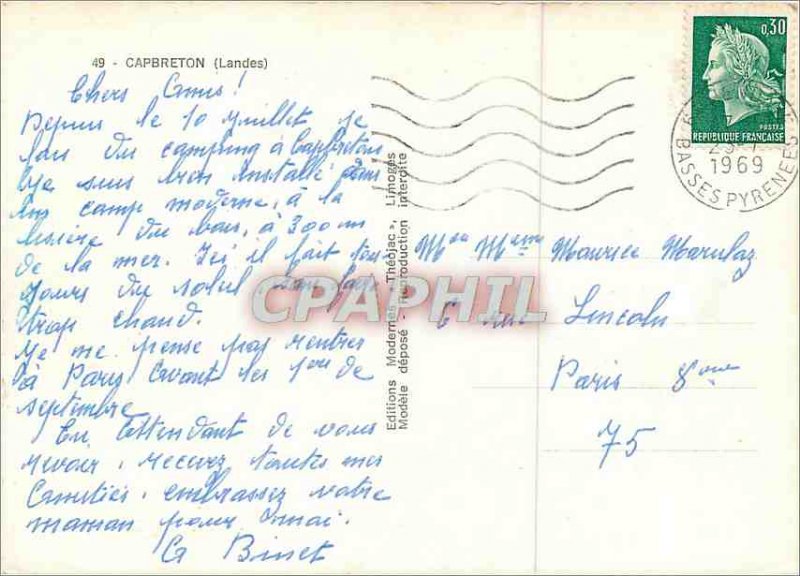 49 - CAPBRETON (Landes)
Chers Amis !
Depuis le 10 Juillet je
fais du camping à Capbreton
Je suis bien installé dans
un camp moderne, à la
lisière du bois, à 300 m
de la mer. Ici il fait tou
jours du soleil sans
trop chaud.
Je ne pense pas rentrer
à Paris avant les 1ers de
septembre
En attendant de vous
revoir, recevez toutes mes
amitiés, embrassez votre
maman pour moi.
G Binet
Editions Modernes « Théojac », Limoges
Modèle déposé - Reproduction interdite
CPAPHIL
0,30
POSTES
REPUBLIQUE FRANÇAISE
1969
BASSES PYRENEES
Mr Mme Maurice Marulaz
6 rue Lincoln
Paris 8ème
75